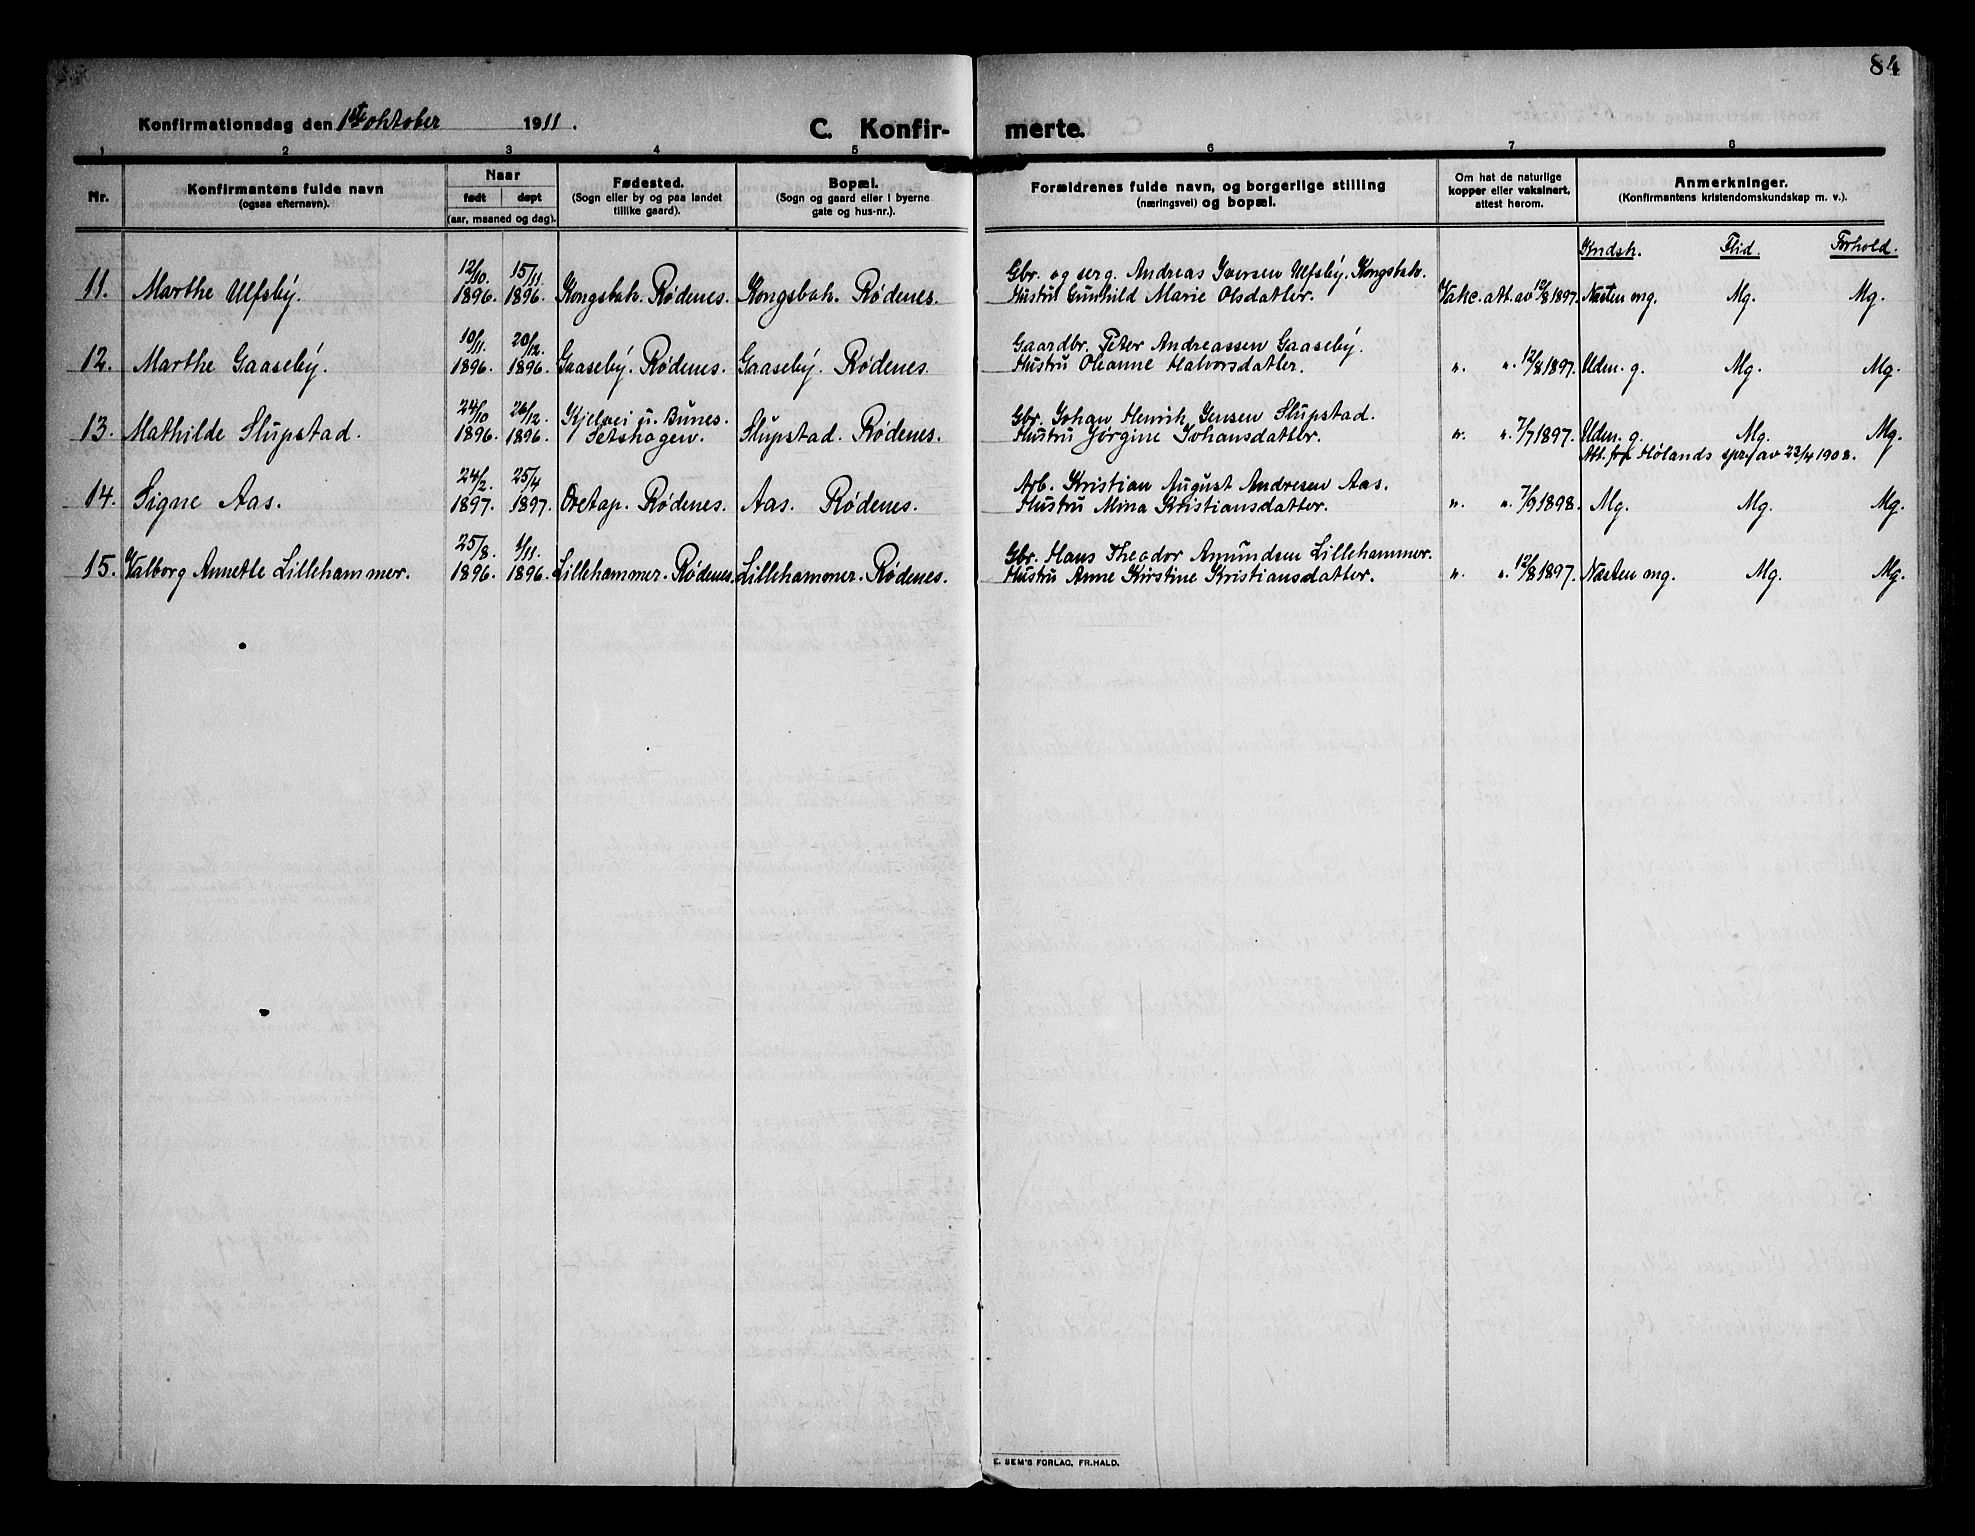 84
Konfirmationsdag den 1ste oktober 1911.
C. Konfirmerte.
1 2 3 4 5 6 7 8
Nr.
Konfirmantens fulde navn
(ogsaa efternavn).
Naar
født døpt
(aar, maaned og dag).
Fødested.
(Sogn eller by og paa landet
tillike gaard).
Bopæl.
(Sogn og gaard eller i byerne
gate og hus-nr.).
Forældrenes fulde navn, og borgerlige stilling
(næringsvei) og bopæl.
Om hat de naturlige
kopper eller vaksinert,
attest herom.
Anmerkninger.
(Konfirmantens kristendomskundskap m. v.).
Kndsk. Flid. Forhold.
12/10. 15/11. Gbr. og serg. Andreas Iversen Ulfsby. Kongsbak.
11. Marthe Ulfsby. 1896. 1896. Kongsbak. Rødenes. Kongsbak. Rødenes. Hustru Gunhild Marie Olsdatter. Vakc. att. av 12/8 1897. Næsten mg. Mg. Mg.
10/11. 20/12. Gaardbr. Peter Andreassen Gaaseby.
12. Marthe Gaaseby. 1896. 1896. Gaaseby. Rødenes. Gaaseby. Rødenes. Hustru Oleanne Halvorsdatter. " " 12/8 1897. Uden. g. Mg. Mg.
24/10 26/12. Kjelvei u. Bunes. Gbr. Johan Henrik Jensen Slupstad.
13. Mathilde Slupstad. 1896. 1896. Setskogen. Slupstad. Rødenes. Hustru Jørgine Johansdatter. " " 7/7 1897. Uden. g. Mg. Mg.
Att. fra Hølands spr. av 23/4 1908.
24/2. 25/4 Arb. Kristian August Andresen Aas.
14. Signe Aas. 1897. 1897. Ovetap. Rødenes. Aas. Rødenes. Hustru Mina Kristiansdatter. " " 7/9 1898. Mg. Mg. Mg.
25/8. 1/11. Gbr. Hans Theodor Amundsen Lillehammer.
15. Valborg Annette Lillehammer. 1896. 1896. Lillehammer. Rødenes. Lillehammer. Rødenes. Hustru Anne Kirstine Kristiansdatter. " " 12/8 1897. Næsten mg. Mg. Mg.
E. SEM'S FORLAG, FR.HALD.